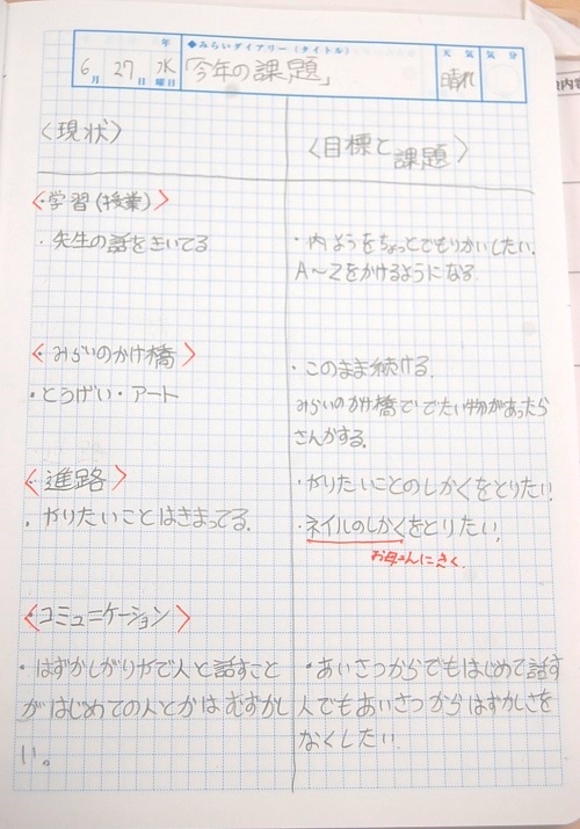 年
◆みらいダイアリー(タイトル)
天気
気分
6月27日水曜日
「今年の課題」
晴れ
〈現状〉
〈目標と課題〉
〈・学習(授業)〉
・先生の話をきいてる
・内ようをちょっとでもりかいしたい。
A〜Zをかけるようになる
〈・みらいのかけ橋〉
・とうげい・アート
・このまま続ける。
みらいのかけ橋ででたい物があったら
さんかする。
〈・進路〉
・やりたいことはきまってる。
・やりたいことのしかくをとりたい!
・ネイルのしかくをとりたい。
お母さんにきく。
〈・コミュニケーション〉
・はずかしがりやで人と話すこと
がはじめての人とかはむずかし
い。
・あいさつからでもはじめて話す
人でもあいさつからはずかしさを
なくしたい
内容